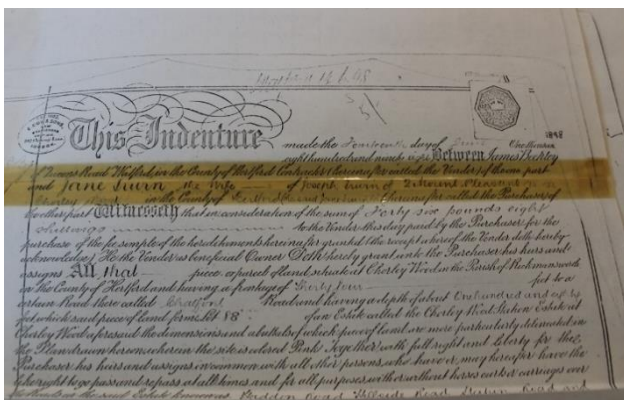 1898
This Indenture made the Fourteenth day of One thousand
eight hundred and ninety eight Between James Beckley
of Road Watford in the County of Hertford Contractor (hereinafter called the Vendor) of the one part
and Jane the Wife of Joseph of 2 Mount Pleasant
Chorley in the County of hereinafter called the Purchaser of
the other part Witnesseth that in consideration of the sum of Forty six pounds eight
shillings to the Vendor this day paid by the Purchaser for the
purchase of the fee simple of the hereditaments hereinafter granted (the receipt whereof the Vendor doth hereby
acknowledge) He the Vendor as beneficial Owner Doth hereby grant unto the Purchaser his heirs and
assigns All that piece or parcel of land situate at Chorley Wood in the Parish of Rickmansworth
in the County of Hertford and having a frontage of Thirty four feet to a
certain Road there called Road and having a depth of about One hundred and
feet which said piece of land forms Lot 88 of an Estate called the Chorley Wood Station Estate at
Chorley Wood aforesaid the dimensions and abuttals of which piece of land are more particularly delineated in
the Plan drawn hereon wherein the site is colored Pink Together with full right and liberty for the
Purchaser his heirs and assigns in common with all other persons who have or may hereafter have the
like right to go pass and repass at all times and for all purposes with or without horses carts or carriages over
the Roads on the said Estate known as Road Hillside Road Road and